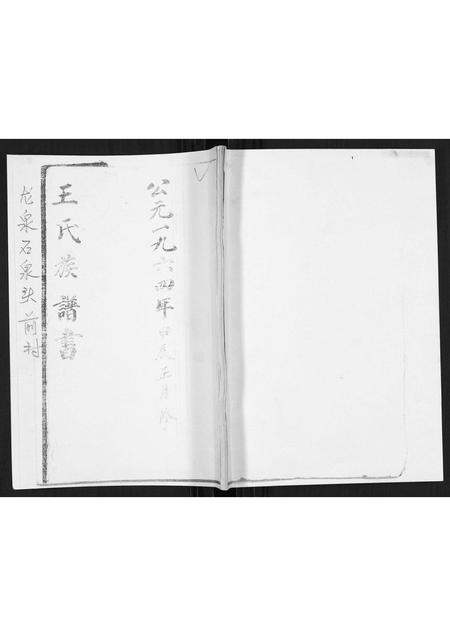 公元一九六四年甲辰正月
王氏族譜書
龙泉石泉头前村